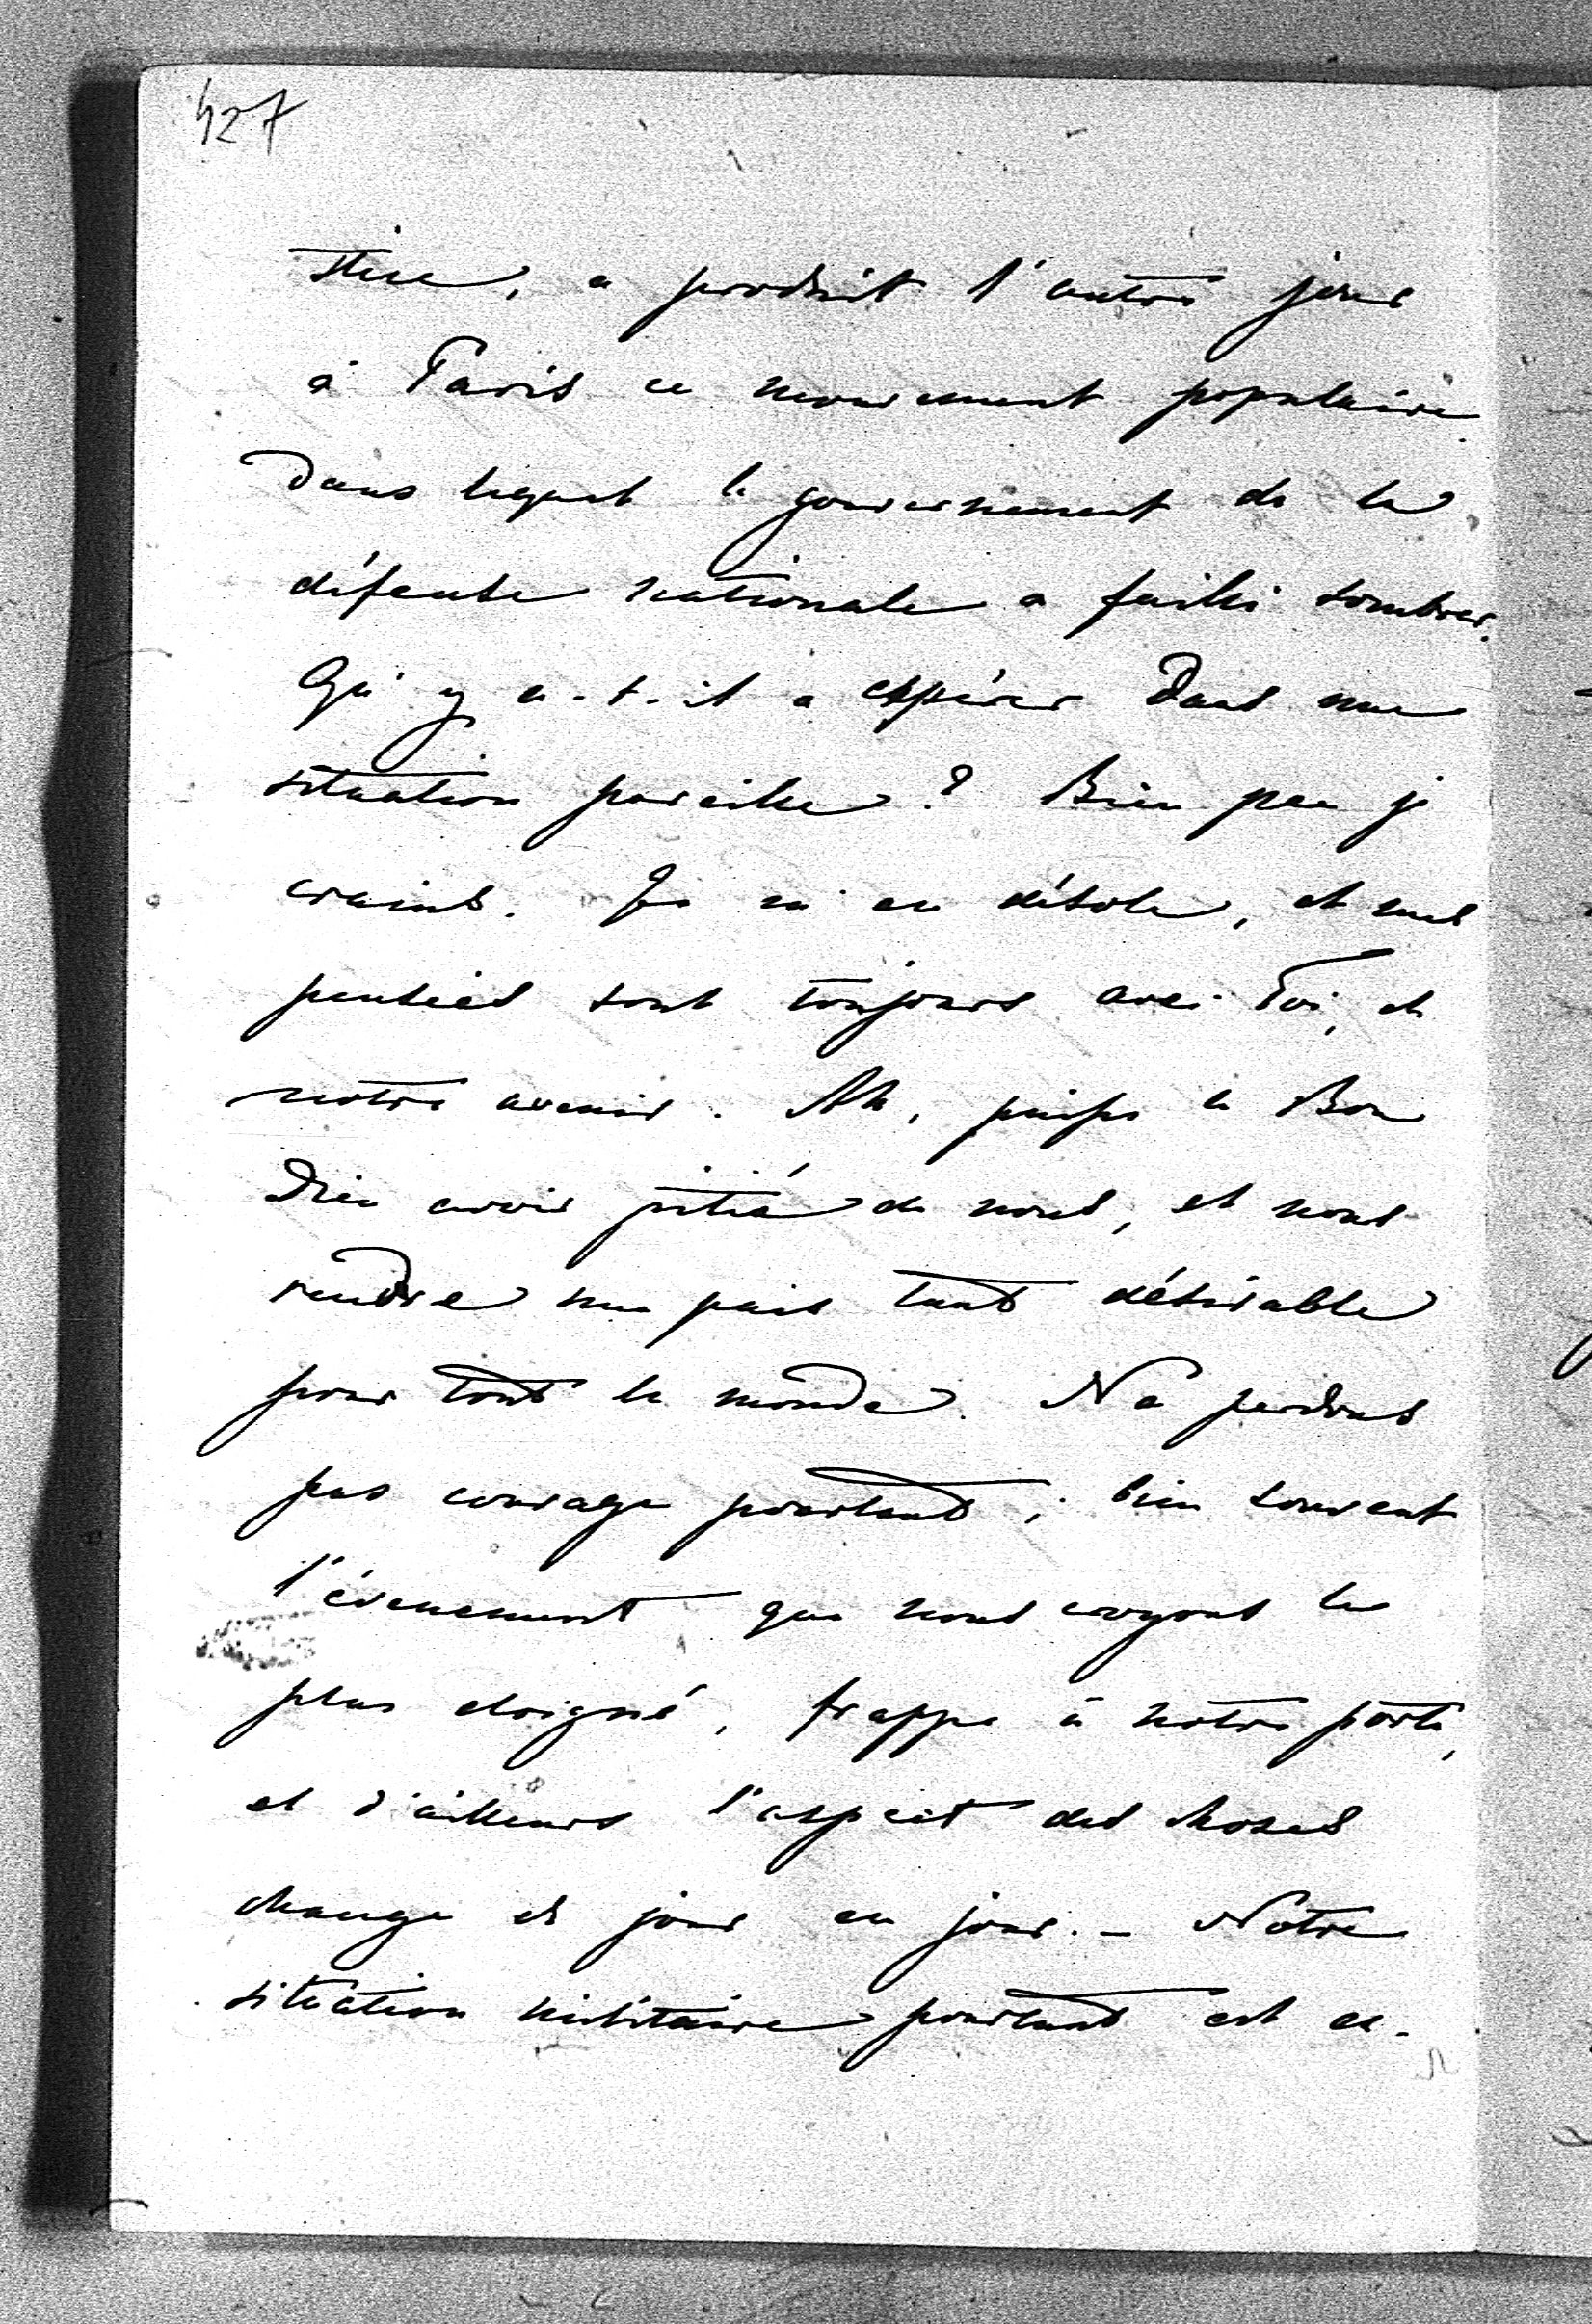 427
stice, a produit l'autre jour
à Paris ce mouvement populaire
dans lequel le gouvernement de la
défense nationale a failli sombrer.
Qu'y a-t-il a espérer dans une
situation pareille ? Bien peu je
crains. Je m'en désole, et mes
pensées sont toujours avec Toi, et
notre avenir. Ah, puisse le Bon
Dieu avoir pitié de nous, et nous
rendre une paix tant désirable
pour tout le monde. Ne perdons
pas courage pourtant ; bien souvent
l'évenement que nous croyons le
plus eloigné, frappe à notre porte,
et d'ailleurs l'aspect des choses
change de jour en jour. - Notre
situation militaire pourtant est ex-